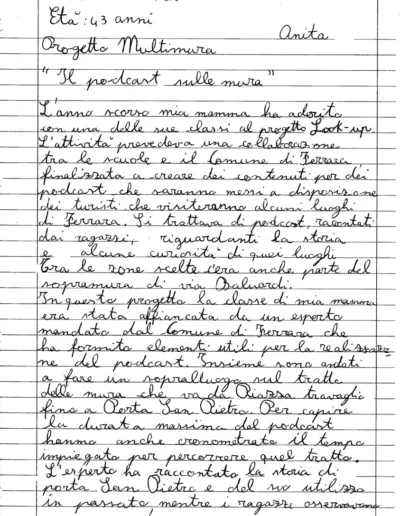 Età: 43 anni
Anita
Progetto Multimura
"Il podcast sulle mura"
L'anno scorso mia mamma ha aderito
con una delle sue classi al progetto Look-up.
L'attività prevedeva una collaborazione
tra le scuole e il Comune di Ferrara,
finalizzata a creare dei contenuti per dei
podcast che saranno messi a disposizione
dei turisti che visiteranno alcuni luoghi
di Ferrara. Si trattava di podcast, racontati
dai ragazzi, riguardanti la storia
e alcune curiosità di quei luoghi
Tra le zone scelte c'era anche parte del
sopramura di via Baluardi.
In questo progetto la classe di mia mamma
era stata affiancata da un esperto
mandato dal Comune di Ferrara che
ha fornito elementi utili per la realizzazio
ne del podcast. Insieme sono andati
a fare un sopralluogo sul tratto
delle mura che va da Piazza travagli
fino a Porta San Pietro. Per capire
la durata massima del podcast
hanno anche cronometrato il tempo
impiegato per percorrere quel tratto.
L'esperto ha raccontato la storia di
porta San Pietro e del suo utilizzo
in passato mentre i ragazzi osservavano